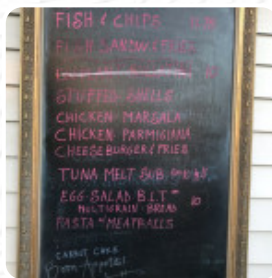 FISH & CHIPS
FISH SANDWICHES
STUFFED SHELLS
CHICKEN MARSALA
CHICKEN PARMIGIANA
CHEESEBURGER & FRIES
TUNA MELT SUB
EGG SALAD B.L.T
MULTIGRAIN BREAD
PASTA MEATBALLS
CARROT CAKE
Bon Appetit!